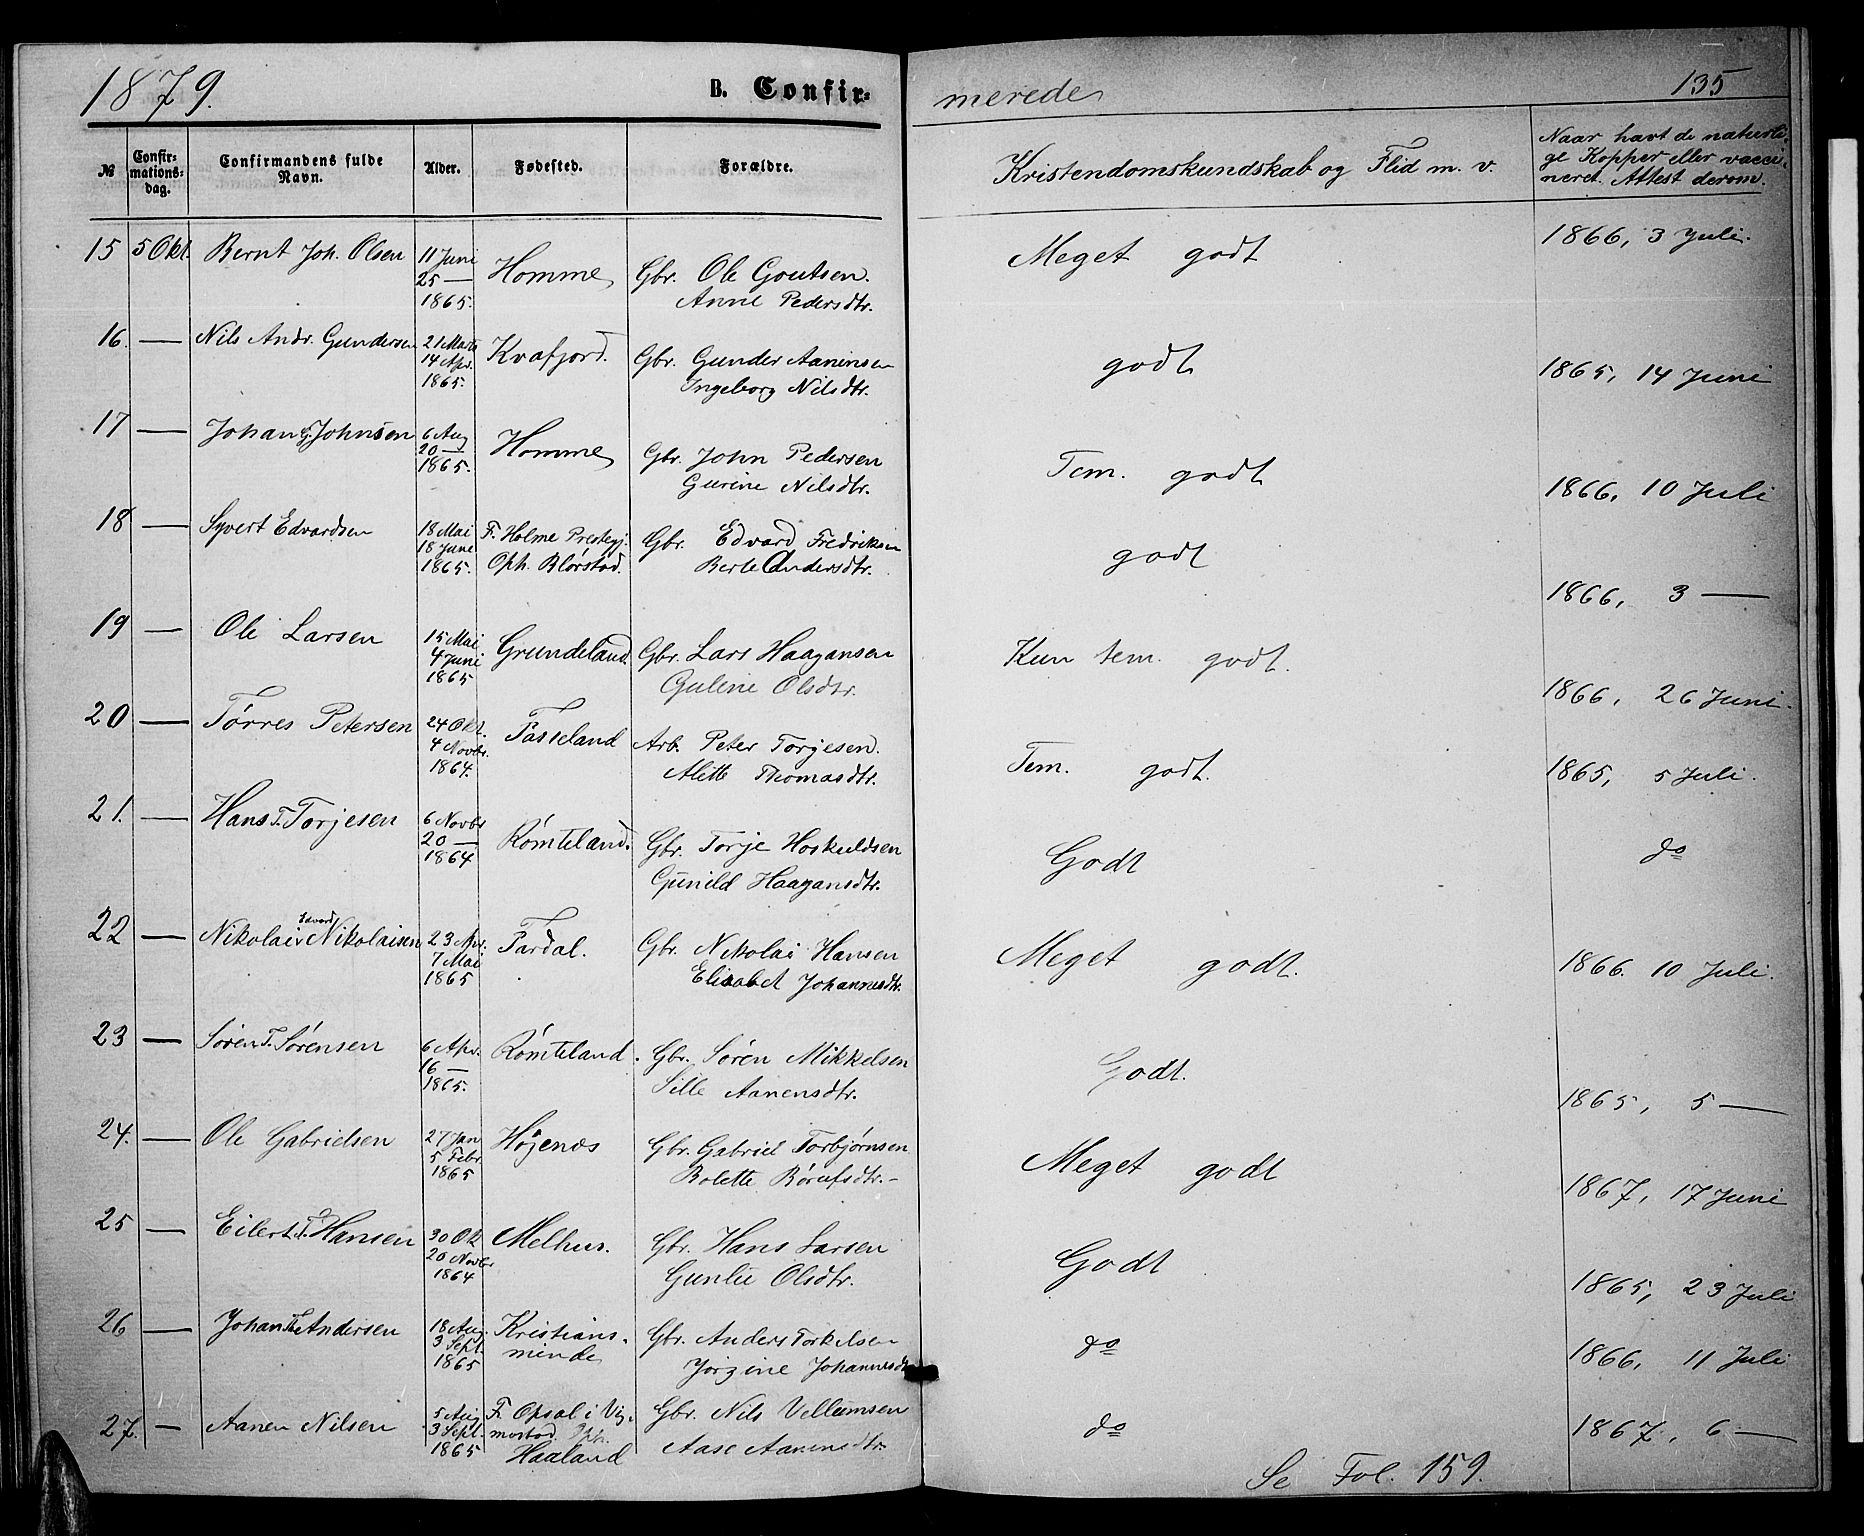 1879. B. Confir- merede 135
№ Confir-mations-dag. Confirmandens fulde Navn. Alder. Fødested. Forældre. Kristendomskundskab og Flid m. v. Naar havt de naturli ge Kopper eller vacci-neret. Attest derom.
15 5 Okt. Bernt Joh. Olsen 11 Juni Homme Gbr. Ole Goutsen. Meget godt 1866, 3 Juli.
25 — Anne Pedersdtr.
1865.
16. — Nils Andr. Gundersen 21 Marts Kvafjord. Gbr. Gunder Aanensen godt 1865, 14 Juni
14 Apr. Ingeborg Nilsdtr.
1865.
17 — Johan G. Johnsen 6 Aug Homme Gbr. John Pedersen Tem. godt 1866, 10 Juli
20 — Gurine Nilsdtr.
1865.
18 — Syvert Edvardsen 18 Mai F. Holme Prestegj. Gbr. Edvard Fredriksen godt 1866, 3 —
18 June Oph. Blørstad. Berte Andersdtr.
1865.
19 — Ole Larsen 15 Mai Grundeland. Gbr. Lars Haagansen Kun tem. godt. 1866, 26 Juni.
4 Juni Guline Olsdtr.
1865
20 — Tørres Petersen 24 Okt. Tasseland Arb. Peter Torjesen. Tem. godt. 1865, 5 Juli.
4 Novbr. Alette Thomasdtr.
1864.
21. — Hans T. Torjesen 6 Novbr Rømteland. Gbr. Torje Hoskuldsen Godt do
20 — Gunild Haagansdtr.
1864
22 — Nikolai Edvard Nikolaisen 23 Apr. Fardal. Gbr. Nikolai Hansen Meget godt. 1866. 10 Juli.
7 Mai Elisabet Johannesdtr.
1865
23 — Søren T. Sørensen 6 Apr. Rømteland. Gbr. Søren Mikkelsen Godt. 1865, 5 —
16 — Sille Aanensdtr.
1865.
24. — Ole Gabrielsen 27 Jan Højenos Gbr. Gabriel Torbjørnsen Meget godt 1867, 17 Juni
5 Febr. Bolette Børufsdtr.
1865
25 — Eilert T. Hansen 30 Ok Melhus. Gbr. Hans Larsen Godt 1865, 23 Juli
20 Novbr Guntie Olsdtr.
1864
26 — Johan Andersen 18 Aug. Kristians- Gbr. Anders Torkelsen do 1866, 11 Juli
3 Sept. minde Jorgine Johannesdtr
1865
27. — Aanen Nilsen 5 Aug F. Opsal i Vig- Gbr. Nils Vellumsen do 1867, 6 —
3 Sept. mostad. Oph. Aase Aanensdtr.
1865 Haaland
Se Fol. 159.